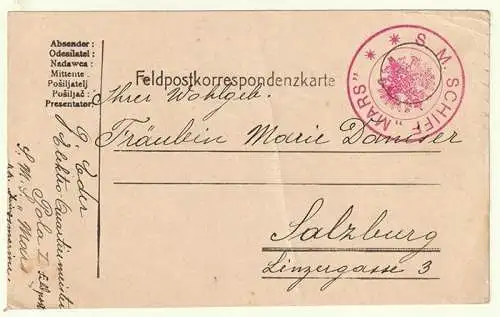 Absender:
Odesílatel:
Nadawca:
Mittente:
Пошильатељ
Pošiljač:
Presentator:
Feldpostkorrespondenzkarte
S. M. SCHIFF „MARS"
Ihrer Wohlgeb.
Fräulein Marie
Salzburg
Linzergasse 3
G. Eder
Elektro Quartiermeister
Pola I
S.M.S. „Mars